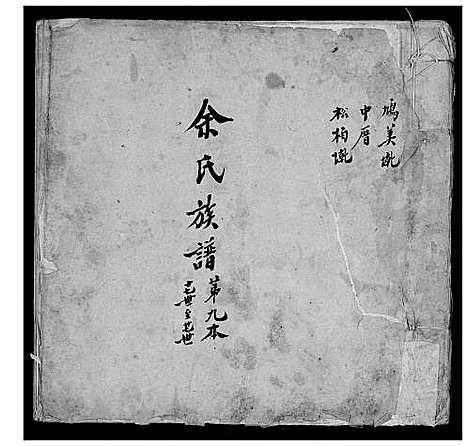 鳩美㘭
中厝
松柏㘭
余氏族譜
第九本
十七世至廿世